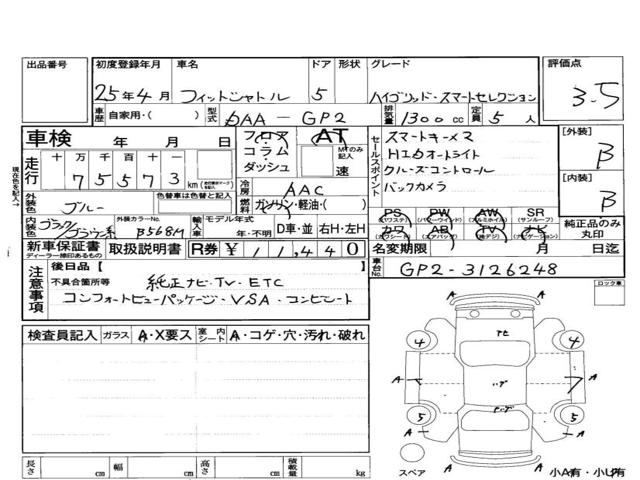 出品番号 初度登録年月 車名 ドア 形状 グレード 評価点
25年4月 フィットシャトル 5 ハイブリッド・スマートセレクション 3-5
車歴 自家用・( ) 型式 DAA-GP2 排気量 1300cc 定員 5人
車検 年 月 日 フロア コラム ダッシュ AT MTのみ記入 速
走行 十 万 千 百 十 一
75573 km
冷房 AAC
燃料 ガソリン・軽油・( )
外装色 ブルー 色替車は色替と記入
内装色 ブラック/ブラウン系 外装カラーNo. B568M 輸入車 モデル年式 年・不明 D車・並 右H・左H
新車保証書 ディーラー捺印あるもの 取扱説明書 R券 ¥11,440
セールスポイント
スマートキー×2
HIDオートライト
クルーズコントロール
バックカメラ
PS (パワステ) PW (パワーウィンド) AW (アルミホイル) SR (サンルーフ)
カワ (カワシート) AB (エアバッグ) TV (地デジ) ナビ (ナビゲーション)
純正品のみ丸印
[外装] B
[内装] B
名変期限 月 日迄
車台No. GP2-3126248
注意事項 後日品【 】
不具合箇所等 純正ナビ・TV・ETC
コンフォートビューパッケージ・VSA・コンビシート
検査員記入 ガラス A・X要ス 室内シート A・コゲ・穴・汚れ・破れ
現在色を記入→
ロック車
4 4
A A 7 A
5 5
A A
A A
スペア
小A有・小U有
長さ cm 幅 cm 高さ cm 積載量 kg